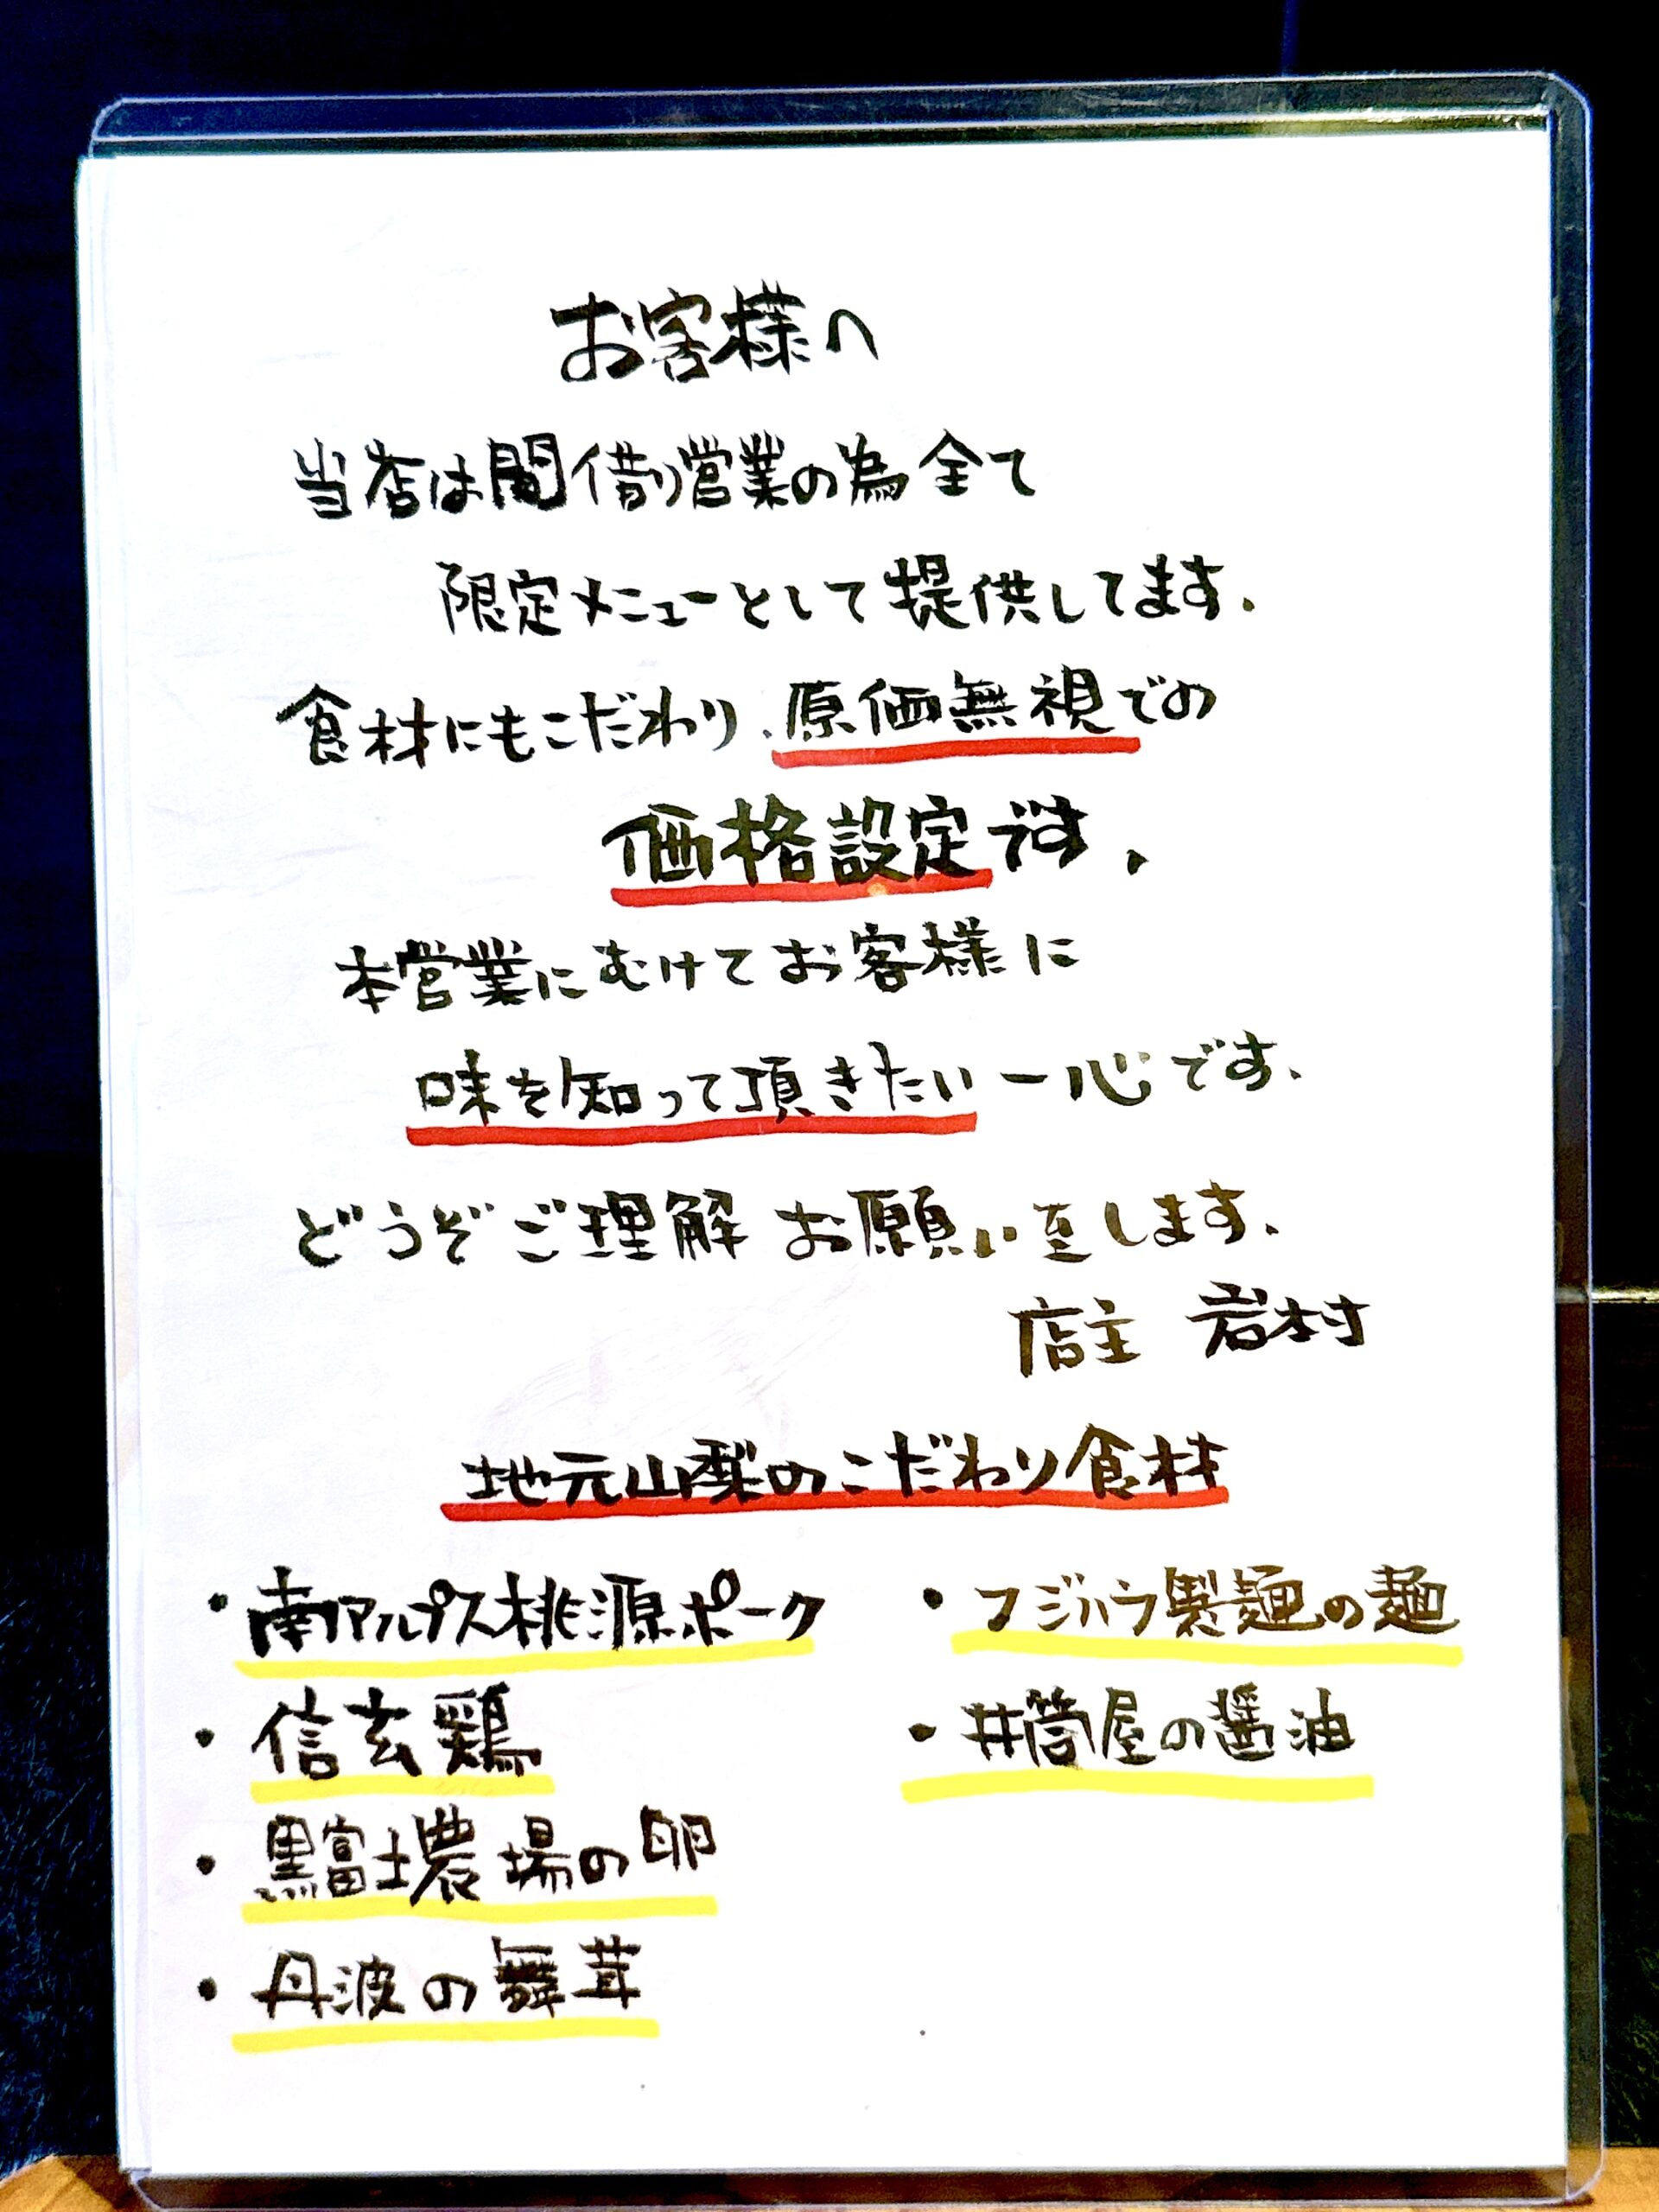 お客様へ
当店は間借り営業の為全て
限定メニューとして提供してます.
食材にもこだわり、原価無視での
価格設定です.
本営業にむけてお客様に
味を知って頂きたい一心です.
どうぞご理解お願い致します.
店主 岩村
地元山梨のこだわり食材
・南アルプス桃源ポーク
・信玄鶏
・黒富士農場の卵
・丹波の舞茸
・フジハラ製麺の麺
・井筒屋の醤油